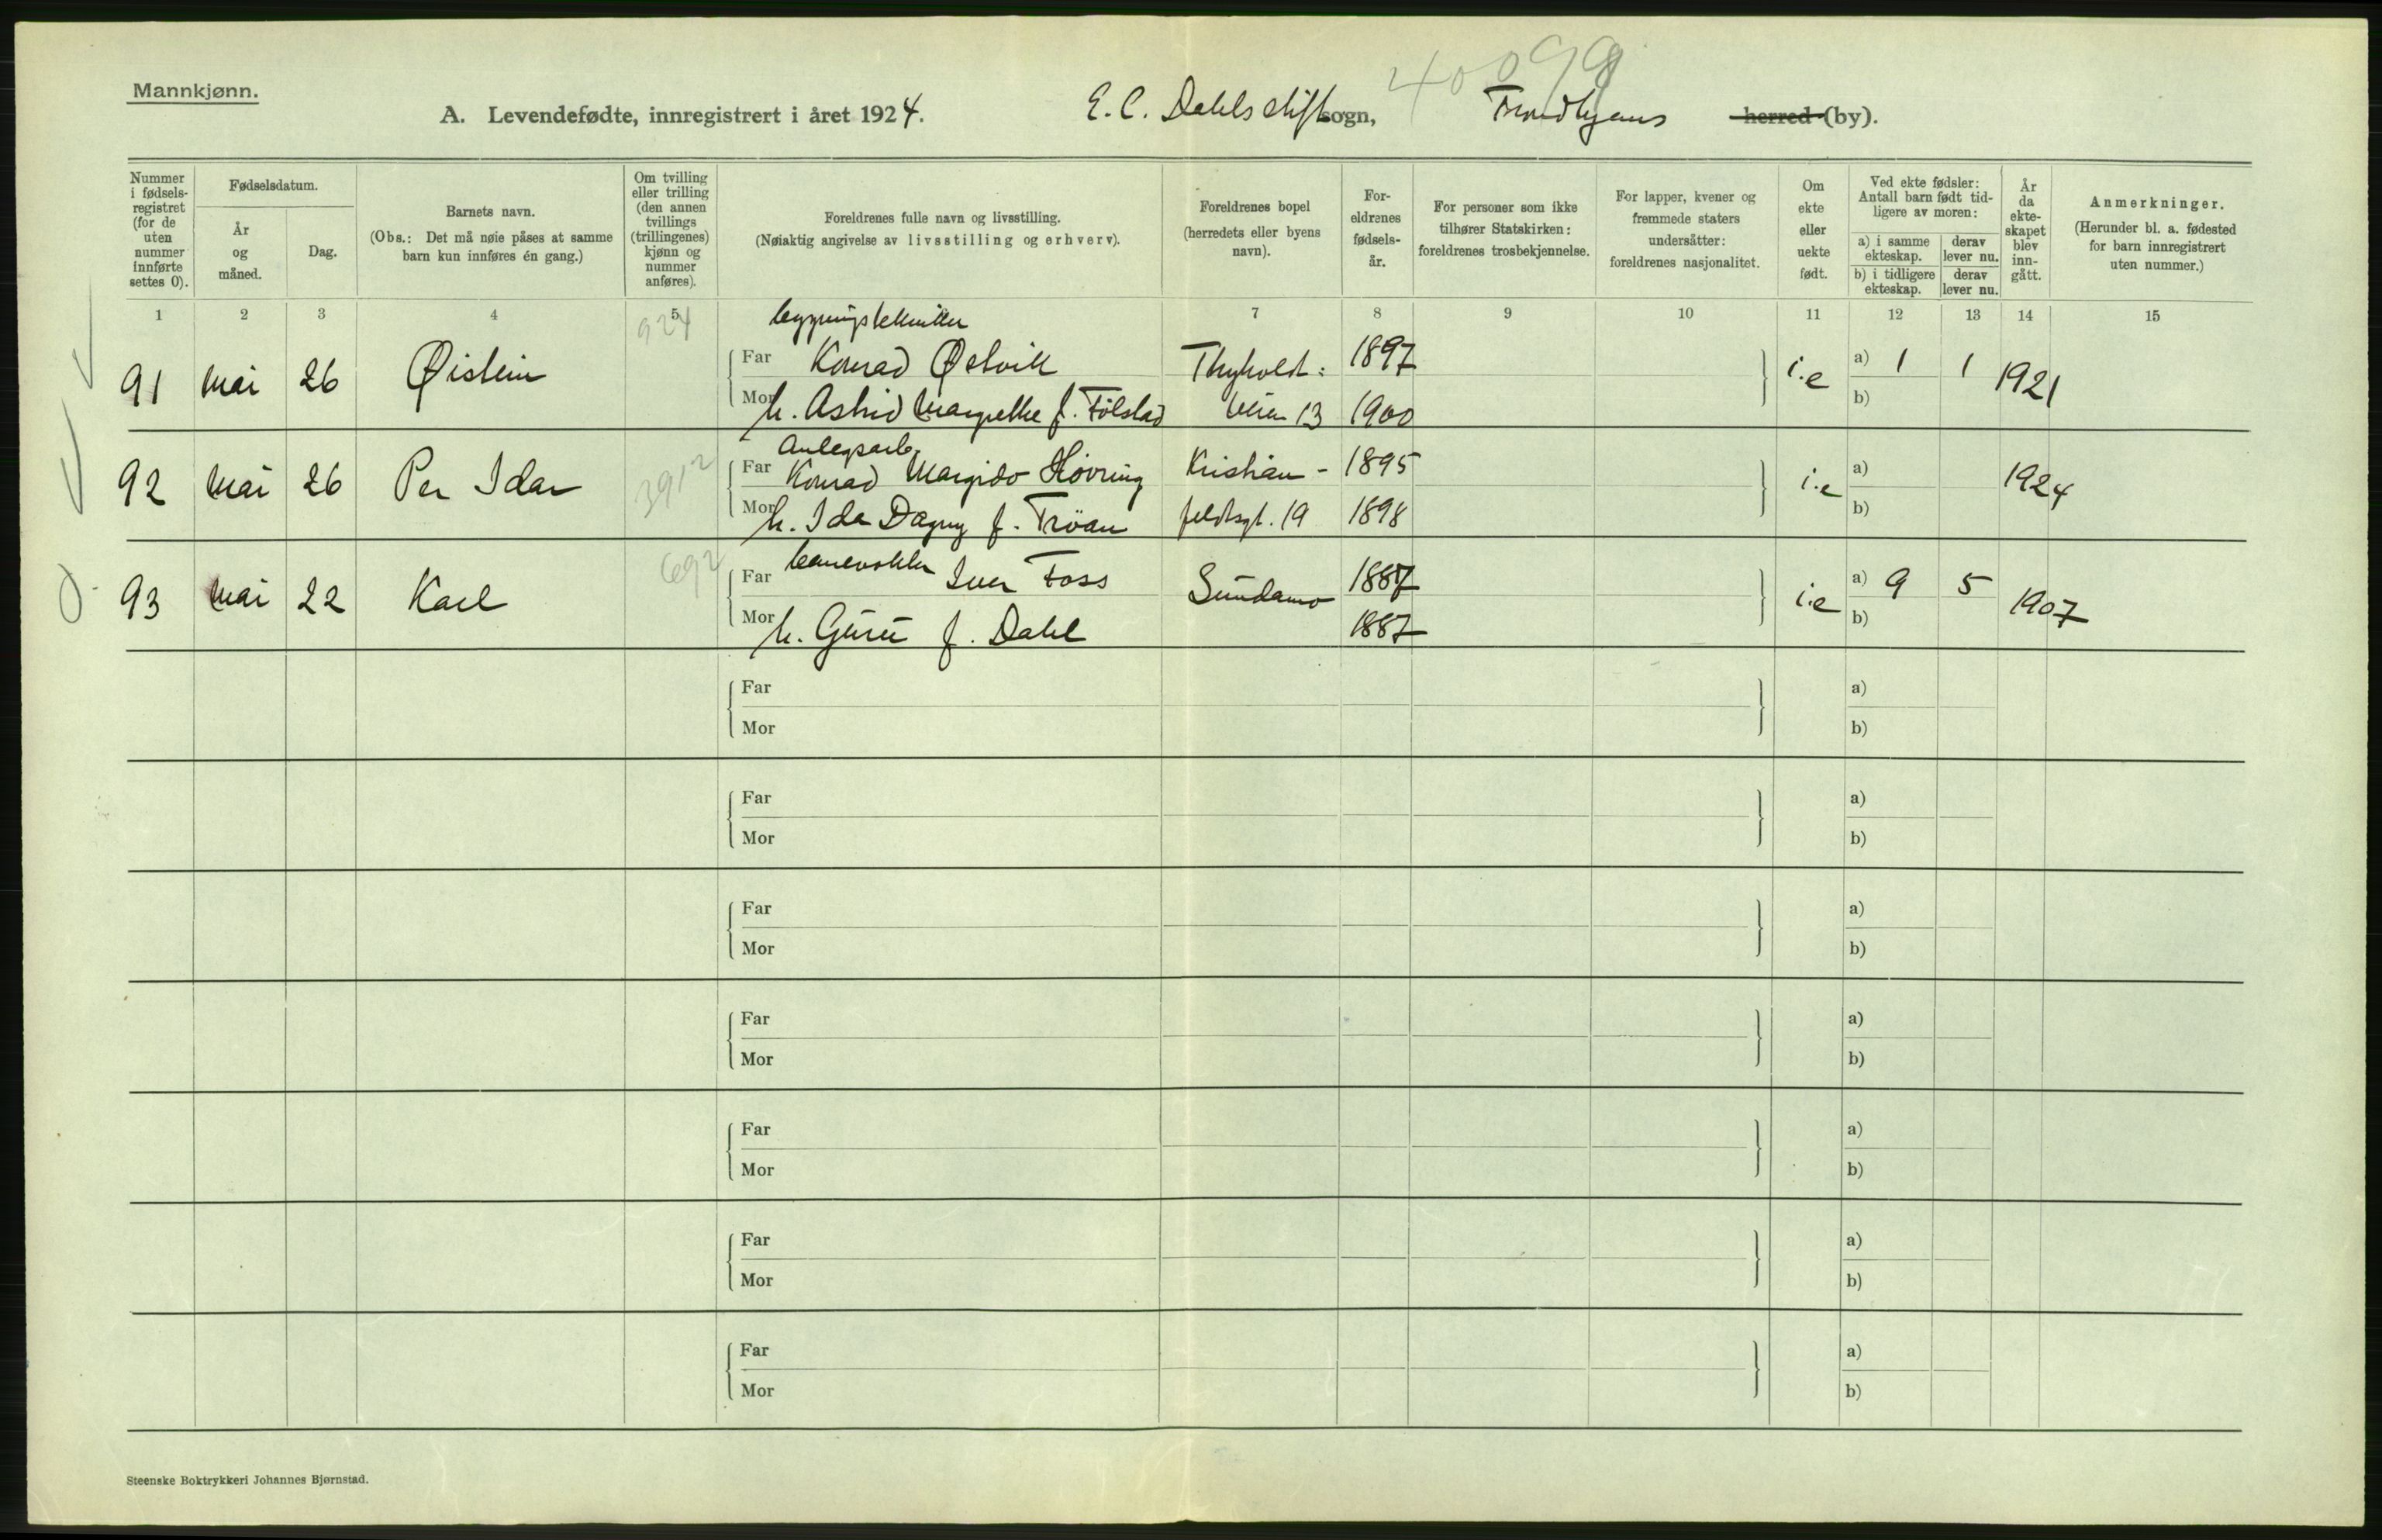 40099
Mannkjønn.
A. Levendefødte, innregistrert i året 1924. E. C. Dahls stift sogn, Trondhjems herred (by).
Nummer i fødselsregistret (for de uten nummer innførte settes 0).
Fødselsdatum.
År og måned.
Dag.
Barnets navn.
(Obs.: Det må nøie påses at samme barn kun innføres én gang.)
Om tvilling eller trilling (den annen tvillings (trillingenes) kjønn og nummer anføres).
Foreldrenes fulle navn og livsstilling.
(Nøiaktig angivelse av livsstilling og erhverv).
Foreldrenes bopel (herredets eller byens navn).
Foreldrenes fødselsår.
For personer som ikke tilhører Statskirken: foreldrenes trosbekjennelse.
For lapper, kvener og fremmede staters undersåtter: foreldrenes nasjonalitet.
Om ekte eller uekte født.
Ved ekte fødsler: Antall barn født tidligere av moren:
a) i samme ekteskap. derav lever nu.
b) i tidligere ekteskap. derav lever nu.
År da ekteskapet blev inngått.
Anmerkninger.
(Herunder bl. a. fødested for barn innregistrert uten nummer.)
1 2 3 4 5 7 8 9 10 11 12 13 14 15
924 bygningstekniker
91 mai 26 Øistein Far Konrad Østvik Thyholdt: 1897 i.e a) 1 1 1921
Mor h. Astrid Margrethe f. Følstad veien 13 1900 b)
Anlegsarb.
92 mai 26 Per Idar 3912 Far Konrad Margido Hovring Kristian- 1895 i.e a) 1924
Mor h. Ida Dagny f. Trøan feldtsgt. 19 1898 b)
93 mai 22 Karl 692 Far banevokter Iver Foss Sundamo 1887 i.e a) 9 5 1907
Mor h. Guru f. Dahl 1887 b)
Far a)
Mor b)
Far a)
Mor b)
Far a)
Mor b)
Far a)
Mor b)
Far a)
Mor b)
Far a)
Mor b)
Far a)
Mor b)
Steenske Boktrykkeri Johannes Bjørnstad.